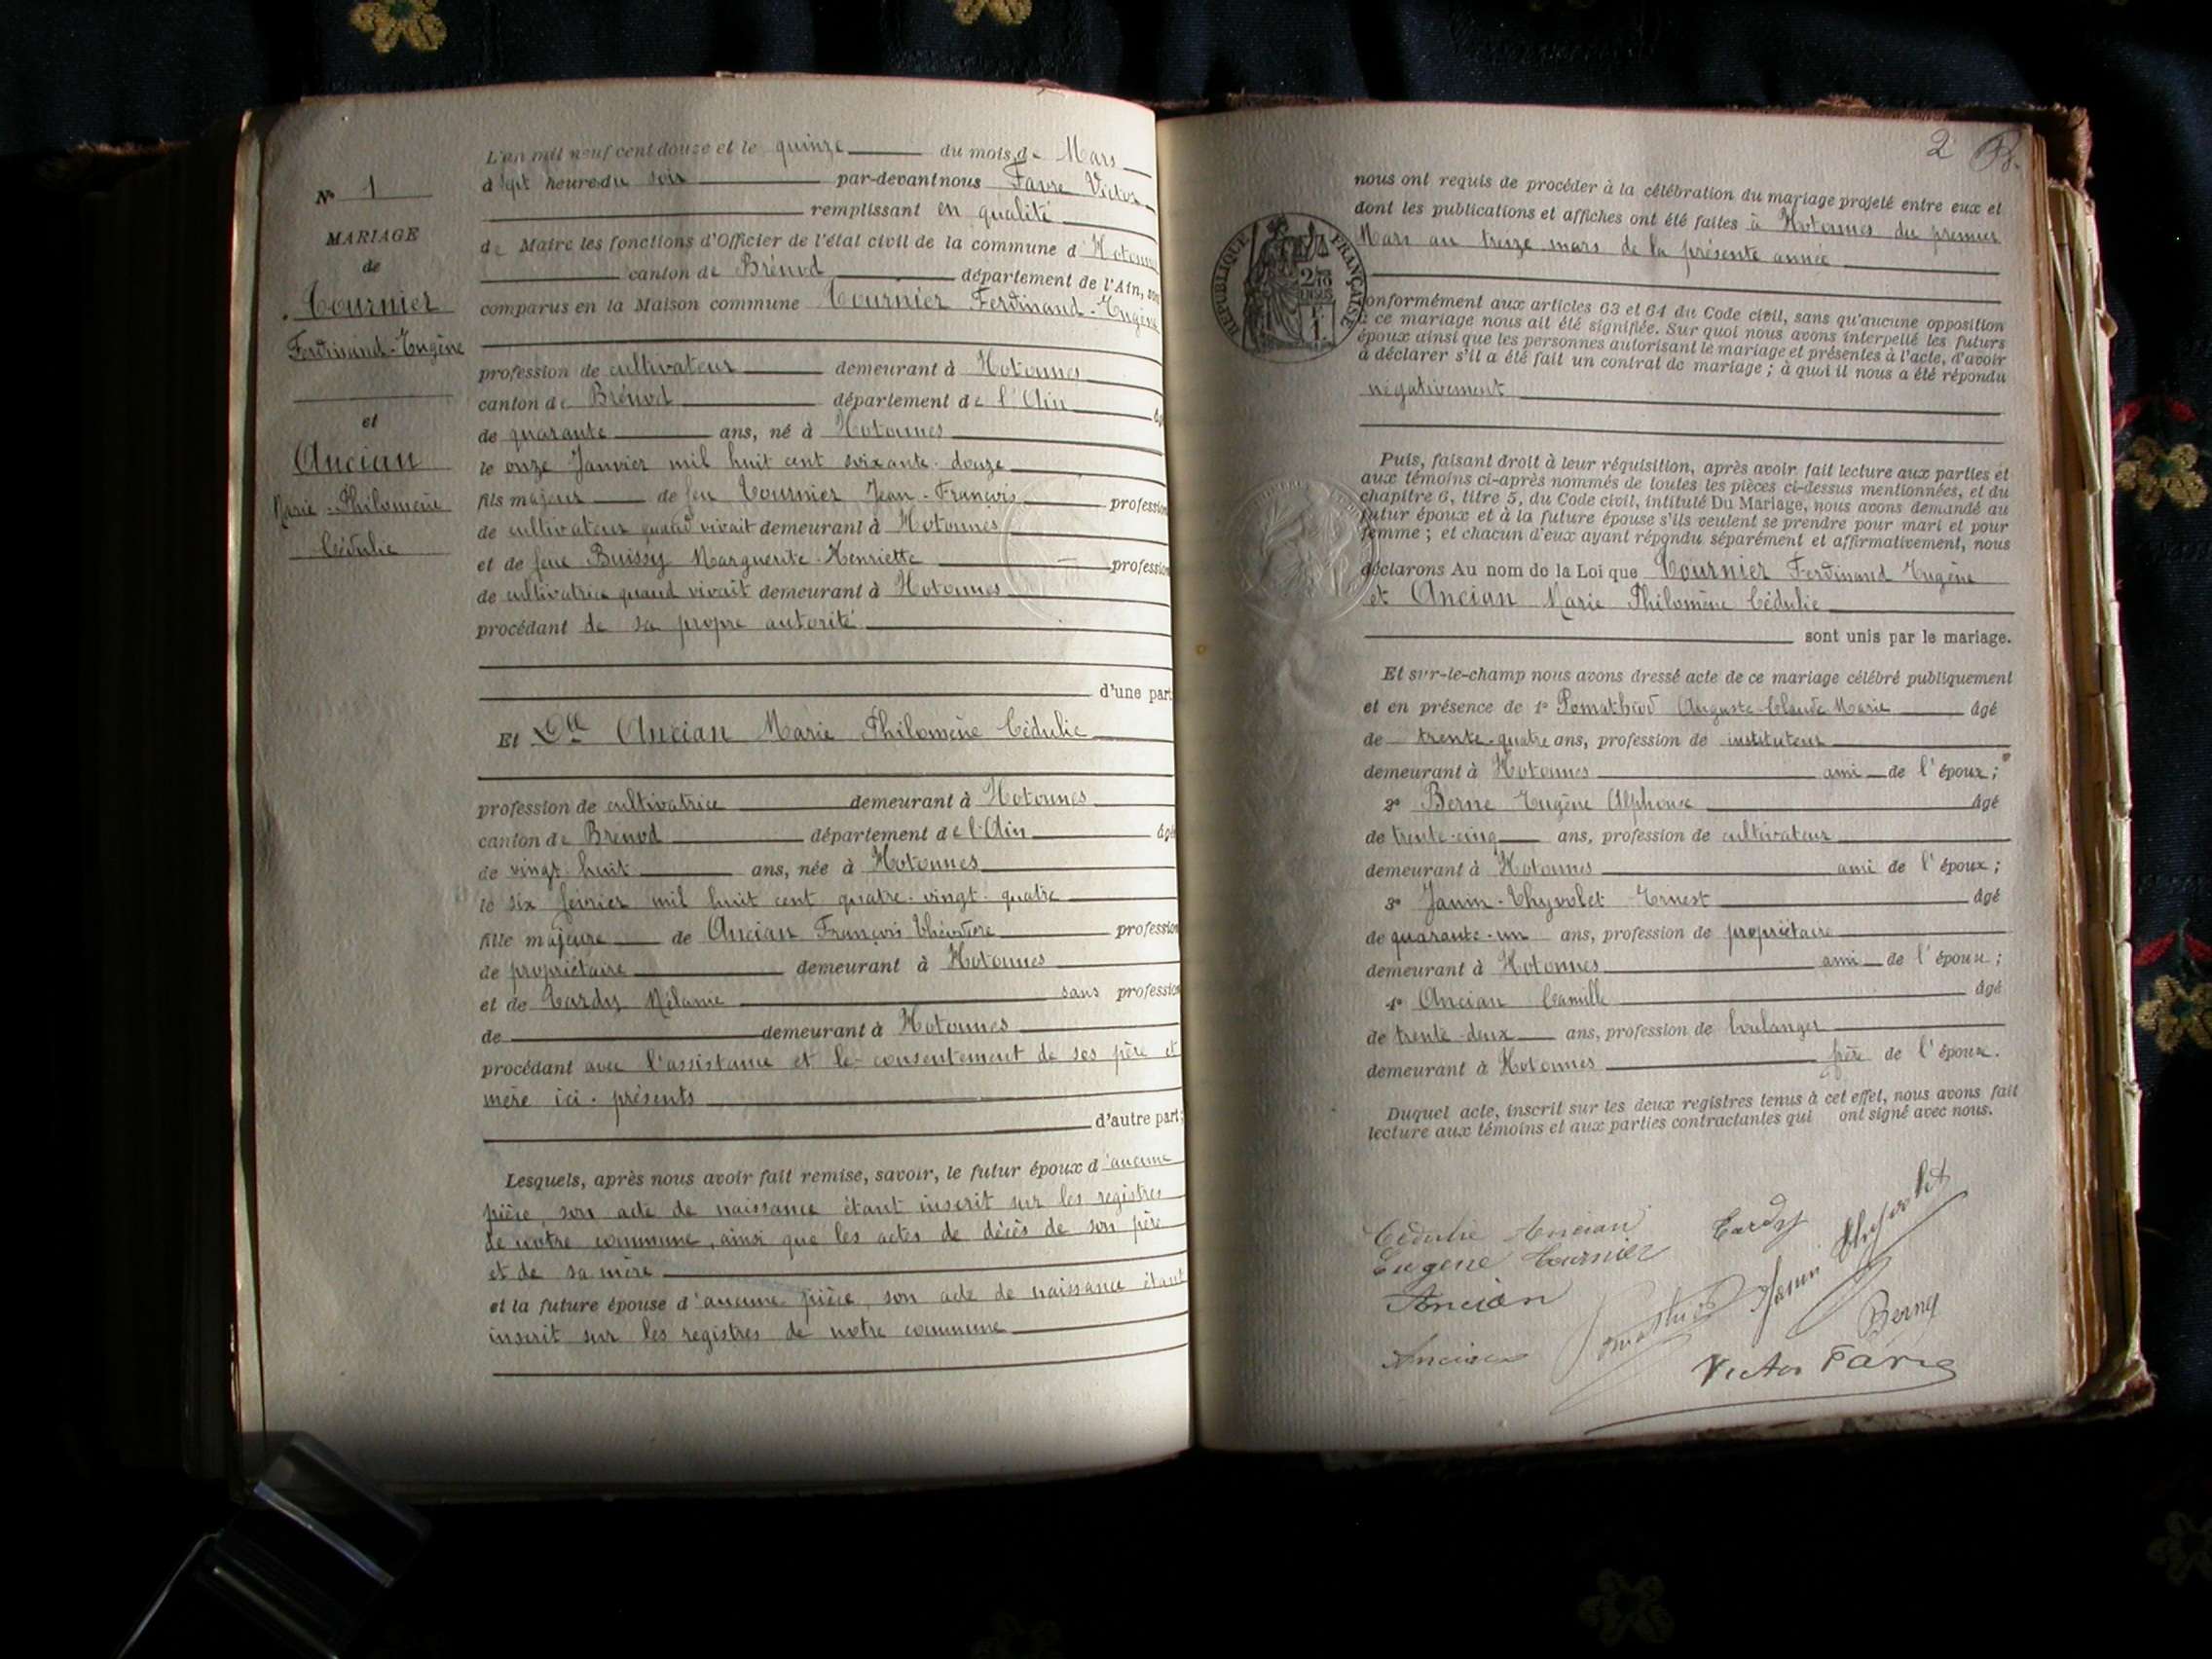 N° 1
MARIAGE
de
Tournier
Ferdinand-Eugène
et
Ancian
Marie-Philomène
Cédulie
L'an mil neuf cent douze et le quinze du mois de Mars
à sept heures du soir par-devant nous Favre Victor
remplissant en qualité
de Maire les fonctions d'Officier de l'état civil de la commune d'Hotonnes
canton de Brénod département de l'Ain, son
comparus en la Maison commune Tournier Ferdinand-Eugène
profession de cultivateur demeurant à Hotonnes
canton de Brénod département de l'Ain âgé
de quarante ans, né à Hotonnes
le onze Janvier mil huit cent soixante-douze
fils majeur de feu Tournier Jean-François profession
de cultivateur quand vivait demeurant à Hotonnes
et de feue Buissy Marguerite-Henriette profession
de cultivatrice quand vivait demeurant à Hotonnes
procédant de sa propre autorité
d'une part
Et Dlle Ancian Marie Philomène Cédulie
profession de cultivatrice demeurant à Hotonnes
canton de Brénod département de l'Ain âgé
de vingt-huit ans, née à Hotonnes
le six février mil huit cent quatre-vingt-quatre
fille majeure de Ancian François Théodore profession
de propriétaire demeurant à Hotonnes
et de Tardy Mélanie sans profession
de demeurant à Hotonnes
procédant avec l'assistance et le consentement de ses père et
mère ici-présents
d'autre part;
Lesquels, après nous avoir fait remise, savoir, le futur époux d'aucune
pièce, son acte de naissance étant inscrit sur les registres
de notre commune, ainsi que les actes de décès de son père
et de sa mère
et la future épouse d'aucune pièce, son acte de naissance étant
inscrit sur les registres de notre commune
2
nous ont requis de procéder à la célébration du mariage projeté entre eux et
dont les publications et affiches ont été faites à Hotonnes du premier
Mars au treize mars de la présente année
RÉPUBLIQUE FRANÇAISE
conformément aux articles 63 et 64 du Code civil, sans qu'aucune opposition
à ce mariage nous ait été signifiée. Sur quoi nous avons interpellé les futurs
époux ainsi que les personnes autorisant le mariage et présentes à l'acte, d'avoir
à déclarer s'il a été fait un contrat de mariage; à quoi il nous a été répondu
négativement
Puis, faisant droit à leur réquisition, après avoir fait lecture aux parties et
aux témoins ci-après nommés de toutes les pièces ci-dessus mentionnées, et du
chapitre 6, titre 5, du Code civil, intitulé Du Mariage, nous avons demandé au
futur époux et à la future épouse s'ils veulent se prendre pour mari et pour
femme; et chacun d'eux ayant répondu séparément et affirmativement, nous
déclarons Au nom de la Loi que Tournier Ferdinand Eugène
et Ancian Marie Philomène Cédulie
sont unis par le mariage.
Et sur-le-champ nous avons dressé acte de ce mariage célébré publiquement
et en présence de 1° Pomathiod Auguste Claude Marie âgé
de trente-quatre ans, profession de instituteur
demeurant à Hotonnes ami de l'époux;
2° Berne Eugène Alphonse âgé
de trente-cinq ans, profession de cultivateur
demeurant à Hotonnes ami de l'époux;
3° Janin-Thyvolet Ernest âgé
de quarante-un ans, profession de propriétaire
demeurant à Hotonnes ami de l'époux;
4° Ancian Camille âgé
de trente-deux ans, profession de boulanger
demeurant à Hotonnes frère de l'épouse.
Duquel acte, inscrit sur les deux registres tenus à cet effet, nous avons fait
lecture aux témoins et aux parties contractantes qui ont signé avec nous.
Cédulie Ancian Tardy
Eugène Tournier
Ancian Pomathiod Janin Thyvolet
Berne
Ancian
Victor Favre